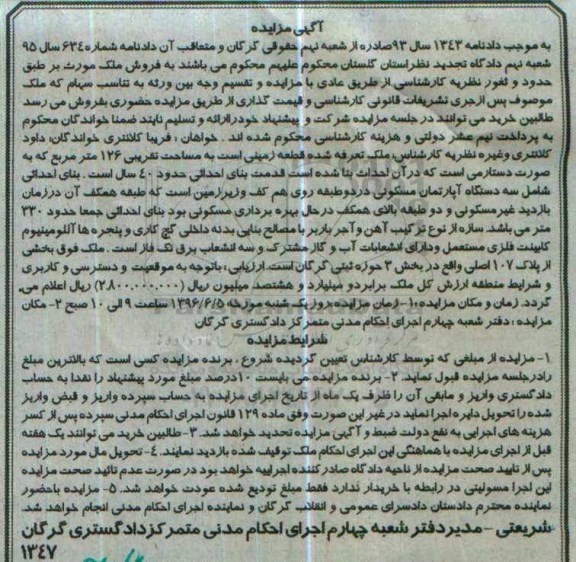 آگهی مزایده
به موجب دادنامه ۱۳۴۳ سال ۹۳صادره از شعبه نهم حقوقی گرگان و متعاقب آن دادنامه شماره ۶۳۴ سال ۹۵
شعبه نهم دادگاه تجدید نظر استان گلستان محکوم علیهم محکوم می باشند به فروش ملک مورث بر طبق
حدود و ثغور نظریه کارشناسی از طریق عادی یا مزایده و تقسیم وجه بین ورثه به تناسب سهام که ملک
موصوف پس ازجری تشریفات قانونی کارشناسی و قیمت گذاری از طریق مزایده حضوری بفروش می رسد
طالبین خرید می توانند در جلسه مزایده شرکت و پیشنهاد خودراارائه و تسلیم نایند ضمنا خواندگان محکوم
به پرداخت نیم عشر دولتی و هزینه کارشناسی محکوم شده اند . خواهان ، فریبا کلانتری خواندگان، داود
کلانتری وغیره نظریه کارشناس، ملک تعرفه شده قطعه زمینی است به مساحت تقریبی ۱۲۶ متر مربع که به
صورت دستدارمی است که در آن احداث بنا شده است قدمت بنای احداثی حدود ۴۰ سال است . بنای احداثی
شامل سه دستگاه آپارتمان مسکونی در دوطبقه روی هم کف وزیرزمین است که طبقه همکف آن در زمان
بازدید غیرمسکونی و دو طبقه بالای همکف در حال بهره برداری مسکونی بود بنای احداثی جمعا حدود ۳۳۰
متر می باشد. سازه از نوع ترکیب آهن و آجر باربر با مصالح بنایی بدنه داخلی گچ کاری و پنجره ها آلئومینیوم
کابینت فلزی مستعمل ودارای انشعابات آب و گاز مشترک و سه انشعاب برق تک فاز است . ملک فوق بخشی
از پلاک ۱۰۷ اصلی واقع در بخش ۳ حوزه ثبتی گرگان است. ارزیابی ، باتوجه به موقعیت و دسترسی و کاربری
و شرایط منطقه ارزش کل ملک برابر دو میلیارد و هشتصد میلیون ریال (۲,۸۰۰,۰۰۰,۰۰۰) ریال اعلام می
گردد. زمان و مکان مزایده:۱- زمان مزایده:روز یک شنبه مورخه ۱۳۹۶/۶/۵ ساعت ۹ الی ۱۰ صبح ۲- مکان
مزایده : دفتر شعبه چهارم اجرای احکام مدنی متمرکز دادگستری گرگان
شرایط مزایده
۱- مزایده از مبلغی که توسط کارشناس تعیین گردیده شروع ، برنده مزایده کسی است که بالاترین مبلغ
رادرجلسه مزایده قبول نماید. ۲- برنده مزایده می بایست ۱۰درصد مبلغ مورد پیشنهاد را نقدا به حساب
دادگستری واریز و مابقی آن را ظرف یک ماه از تاریخ اجرای مزایده به حساب سپرده واریز و قبض واریز
شده را تحویل دایره اجرا نماید در غیر این صورت وفق ماده ۱۲۹ قانون اجرای احکام مدنی سپرده پس از کسر
هزینه های اجرایی به نفع دولت ضبط و آگهی مزایده تجدید خواهد شد. ۳- طالبین خرید می توانند یک هفته
قبل از اجرای مزایده با هماهنگی این اجرای احکام ملک توقیف شده بازدید نمایند. ۴- تحویل مال مورد مزایده
پس از تایید صحت مزایده از ناحیه دادگاه صادر کننده اجراییه خواهد بود در صورت عدم تائید صحت مزایده
این اجرا مسولیتی در رابطه با خریدار ندارد فقط مبلغ تودیع شده عودت خواهد شد. ۵- مزایده باحضور
نماینده محترم دادستان دادسرای عمومی و انقلاب گرگان و نماینده اجرای احکام مدنی انجام خواهد شد.
شریعتی - مدیر دفتر شعبه چهارم اجرای احکام مدنی متمرکز دادگستری گرگان
۱۳۴۷